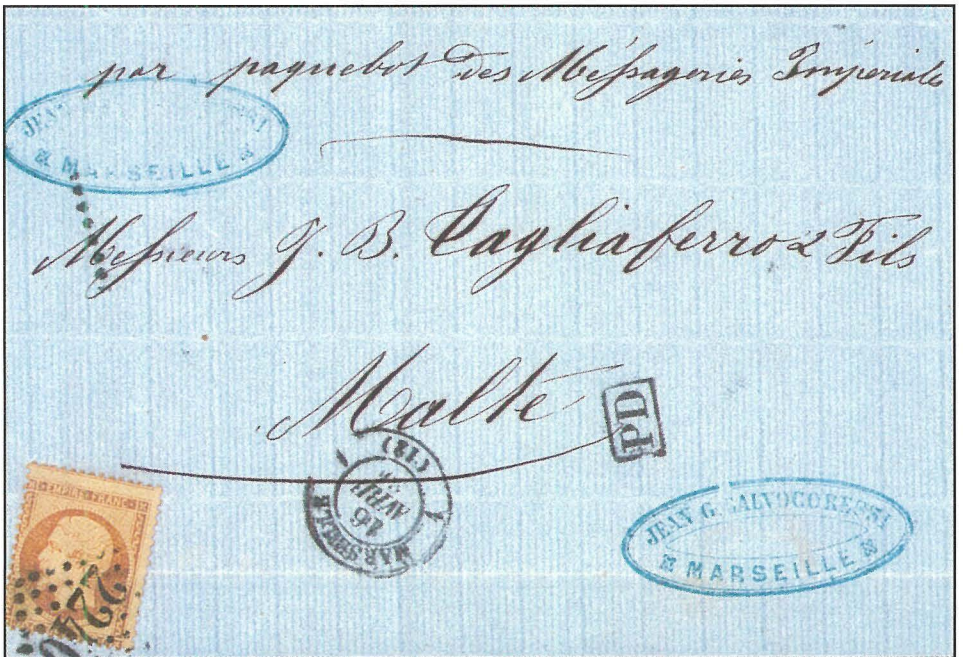 par paquebot des Méssageries Impériales
JEAN
MARSEILLE
Messieurs J. B. Tagliaferro & Fils
Malte
PD
(12)
16
AVRIL
MARSEILLE
JEAN G. SALVOCORESSI
MARSEILLE
EMPIRE FRANC
2240